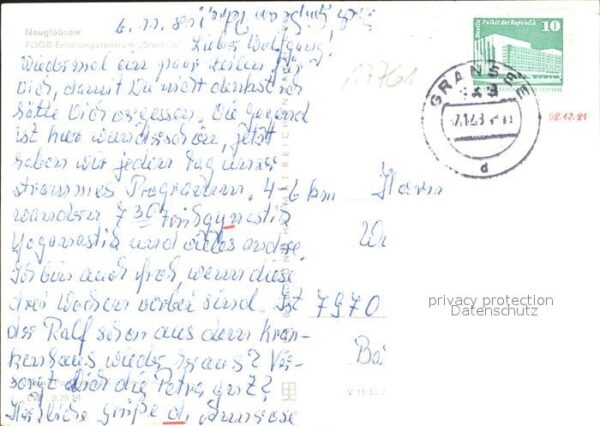 6.11.
Neuglobsow
FDGB-Erholungszentrum "Stechlin"
Lieber Wolfgang!
wiedermal ein paar Zeilen für
Dich, damit Du nicht denkst ich
hätte Dich vergessen. Die Gegend
ist hier wunderschön, jetzt
haben wir jeden Tag unser
strammes Programm. 4-6 km
wandern 7 30 Frühgymnastik
Yoganastik und vieles andre.
Ich bin auch froh, wenn diese
drei Wochen vorbei sind. Ist
der Ralf schon aus dem Kran-
kenhaus wieder heraus? Ver-
sorgt dich die Petra gut?
Herzliche Grüße d. Annerose
17761
Berlin Palast der Republik 10
DDR
GRANSEE
d
08.12.81
Herrn
7970
privacy protection
Datenschutz
V 11 50